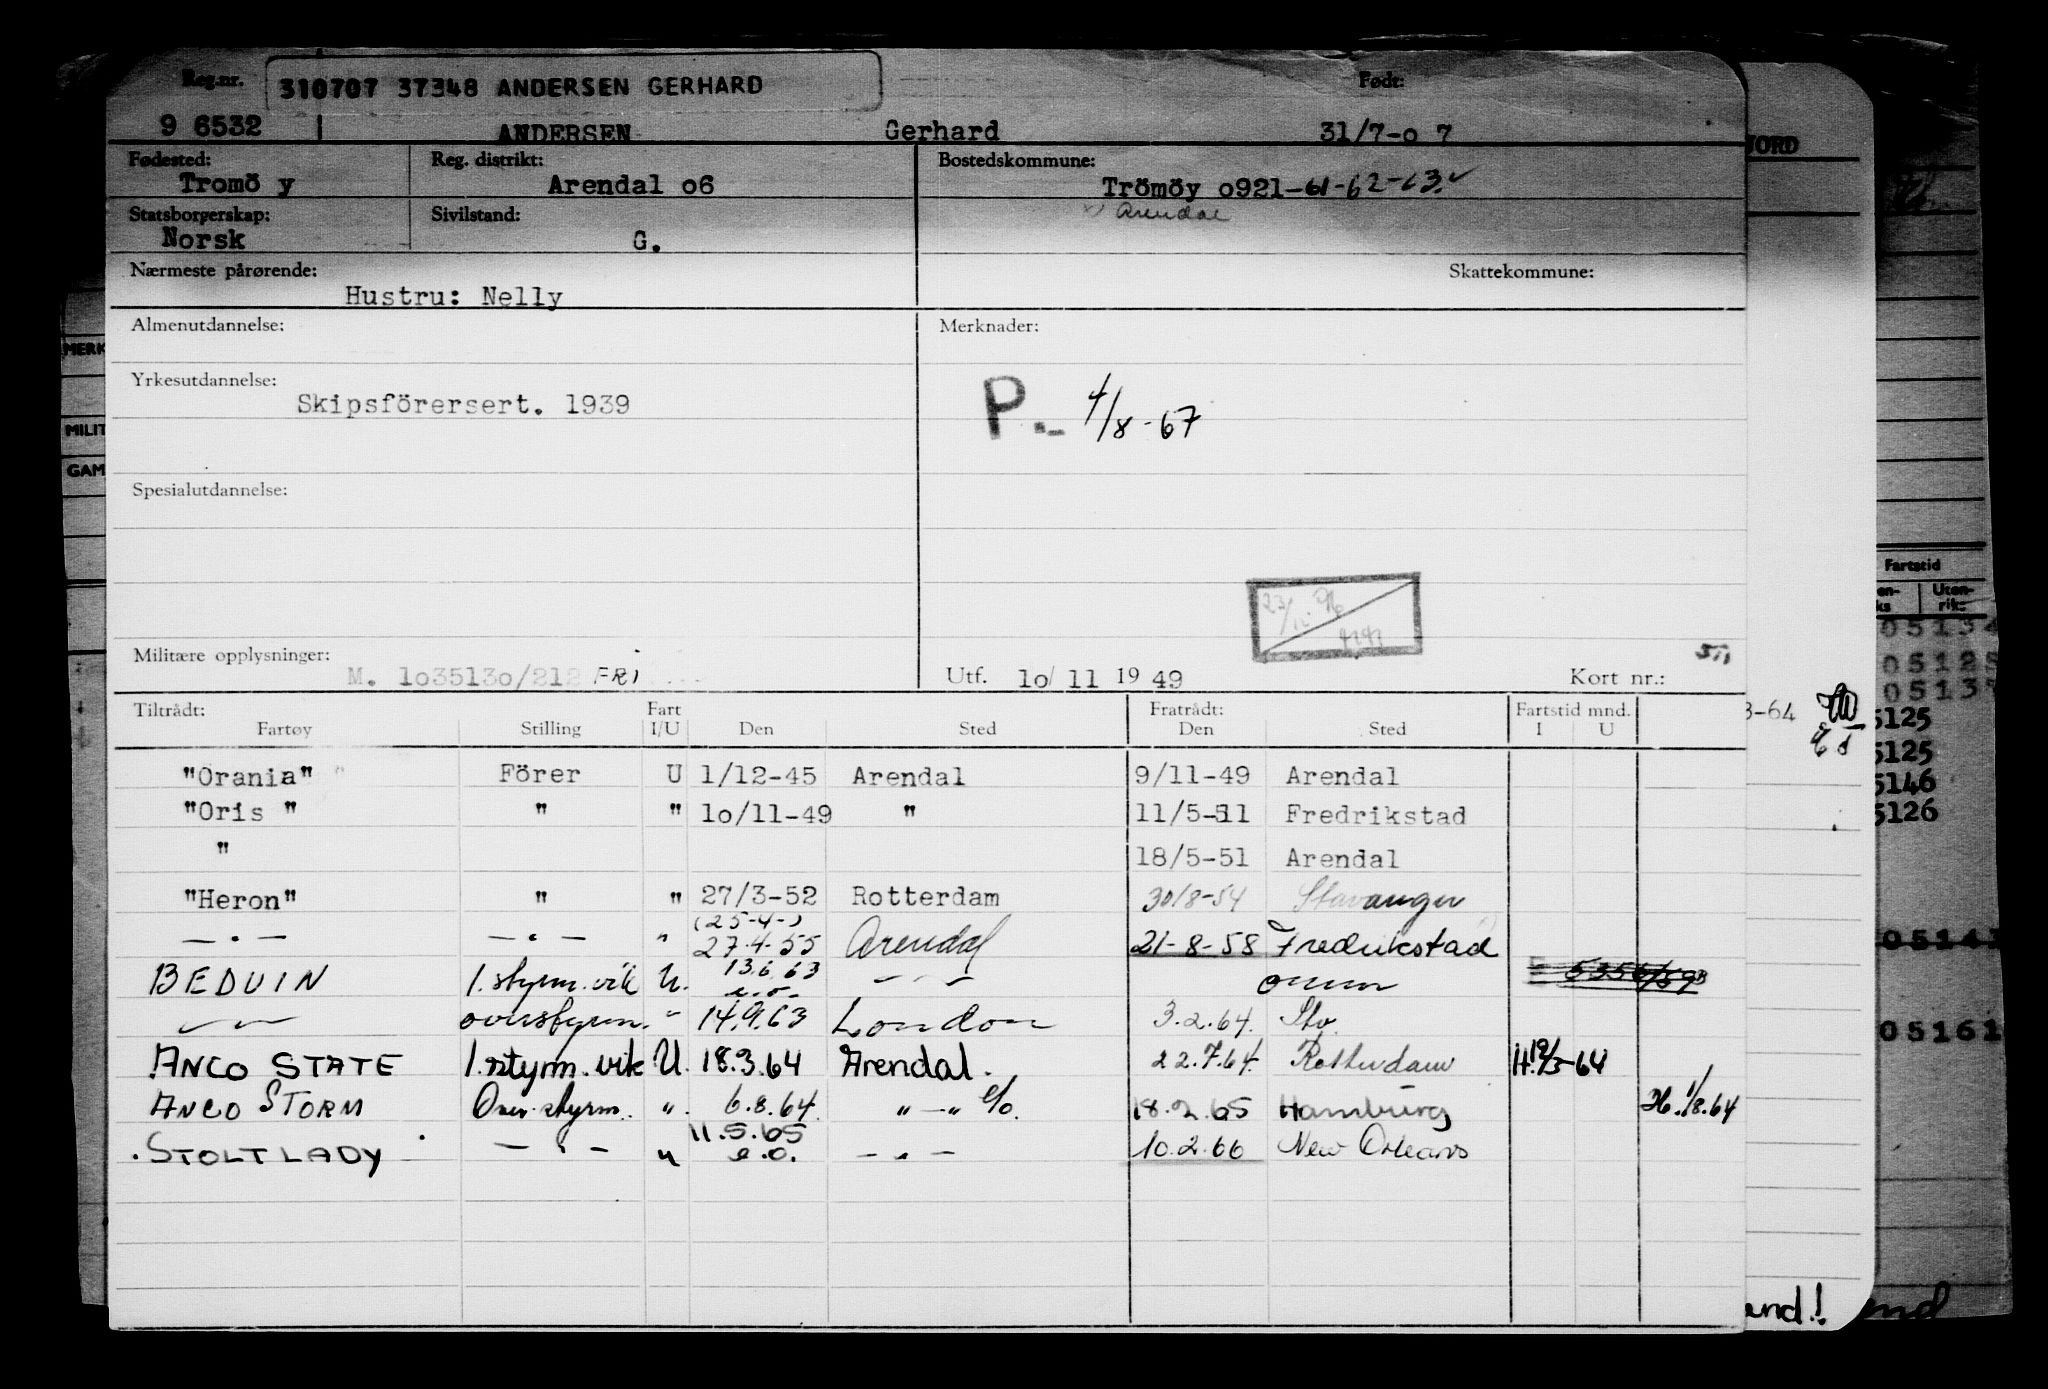 Reg.nr. 310707 37348 ANDERSEN GERHARD Født:
9 6532 ANDERSEN Gerhard 31/7-o 7
Fødested: Reg. distrikt: Bostedskommune:
Tromö y Arendal o6 Trömöy o921-61-62-63.
Arendal
Statsborgerskap: Sivilstand:
Norsk G.
Nærmeste pårørende: Skattekommune:
Hustru: Nelly
Almenutdannelse: Merknader:
Yrkesutdannelse:
Skipsförersert. 1939 P.- 4/8-67
Spesialutdannelse:
Militære opplysninger:
M. 1o3513o/212 FRI Utf. 1o/ 11 19 49 Kort nr.:
Tiltrådt: Fart Fratrådt: Fartstid mnd.
Fartøy Stilling I/U Den Sted Den Sted I U
"Orania" Förer U 1/12-45 Arendal 9/11-49 Arendal
"Oris " " " 1o/11-49 " 11/5-51 Fredrikstad
" 18/5-51 Arendal
"Heron" " " 27/3-52 Rotterdam 30/8-54 Stavanger
(25-4-)
— " — — " — " 27.4.55 Arendal 21-8-58 Fredrikstad
BEDUIN 1. styrm. vik U. 13.6.63 — " — omm
e.o.
— " — overstyrm. " 14.9.63 London 3.2.64. Sto.
ANCO STATE 1. styrm. vik U. 18.3.64 Arendal. 22.7.64. Rotterdam H.19/3-64
ANCO STORM Over.styrm. " 6.8.64. " — " e/o. 18.2.65 Hamburg H.1/8.64
11.5.65
STOLT LADY — " — " e.o. — " — 10.2.66 New Orleans
JORD
MERK
MILIT
GAM
Fartstid
Uten-
rik:
05134
0513
3-64
5125
5125
5146
5126
05143
05161
and!